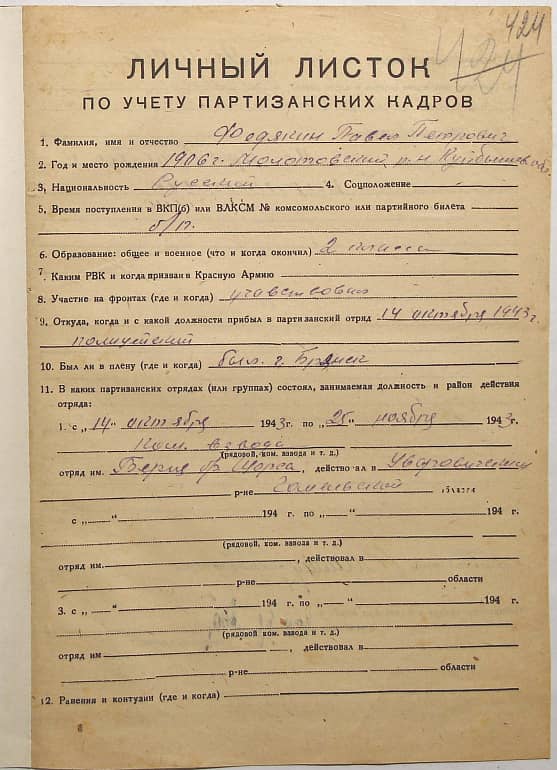 424
424
ЛИЧНЫЙ ЛИСТОК
ПО УЧЕТУ ПАРТИЗАНСКИХ КАДРОВ
1. Фамилия, имя и отчество Федякин Павел Петрович
2. Год и место рождения 1906 г. Молотовский р-н Куйбышев обл.
3, Национальность Русский 4. Соцположение
5. Время поступления в ВКП(б) или ВЛКСМ № комсомольского или партийного билета
б/п.
6. Образование: общее и военное (что и когда окончил) 2 класса
7. Каким РВК и когда призван в Красную Армию
8. Участие на фронтах (где и когда) участвовал
9. Откуда, когда и с какой должности прибыл в партизанский отряд 14 октября 1943 г.
полицейский
10. Был ли в плену (где и когда) был. г. Брянск
11. В каких партизанских отрядах (или группах) состоял, занимаемая должность и район действия
отряда:
1. с „14" октября 1943 г. по „25" ноября 1943 г.
Ком. взвода
(рядовой, ком. взвода и т. д.)
отряд им. Берия бр. Щорса, действовал в Уваровичский
р-не Гомельской области
с „ — " 194 г. по „ — " 194 г.
(рядовой, ком. взвода и т. д.)
отряд им. , действовал в
р-не области
3. с „ — " 194 г. по „ — " 194 г.
(рядовой, ком. взвода и т. д.)
отряд им , действовал в
р-не области
12. Ранения и контузии (где и когда)